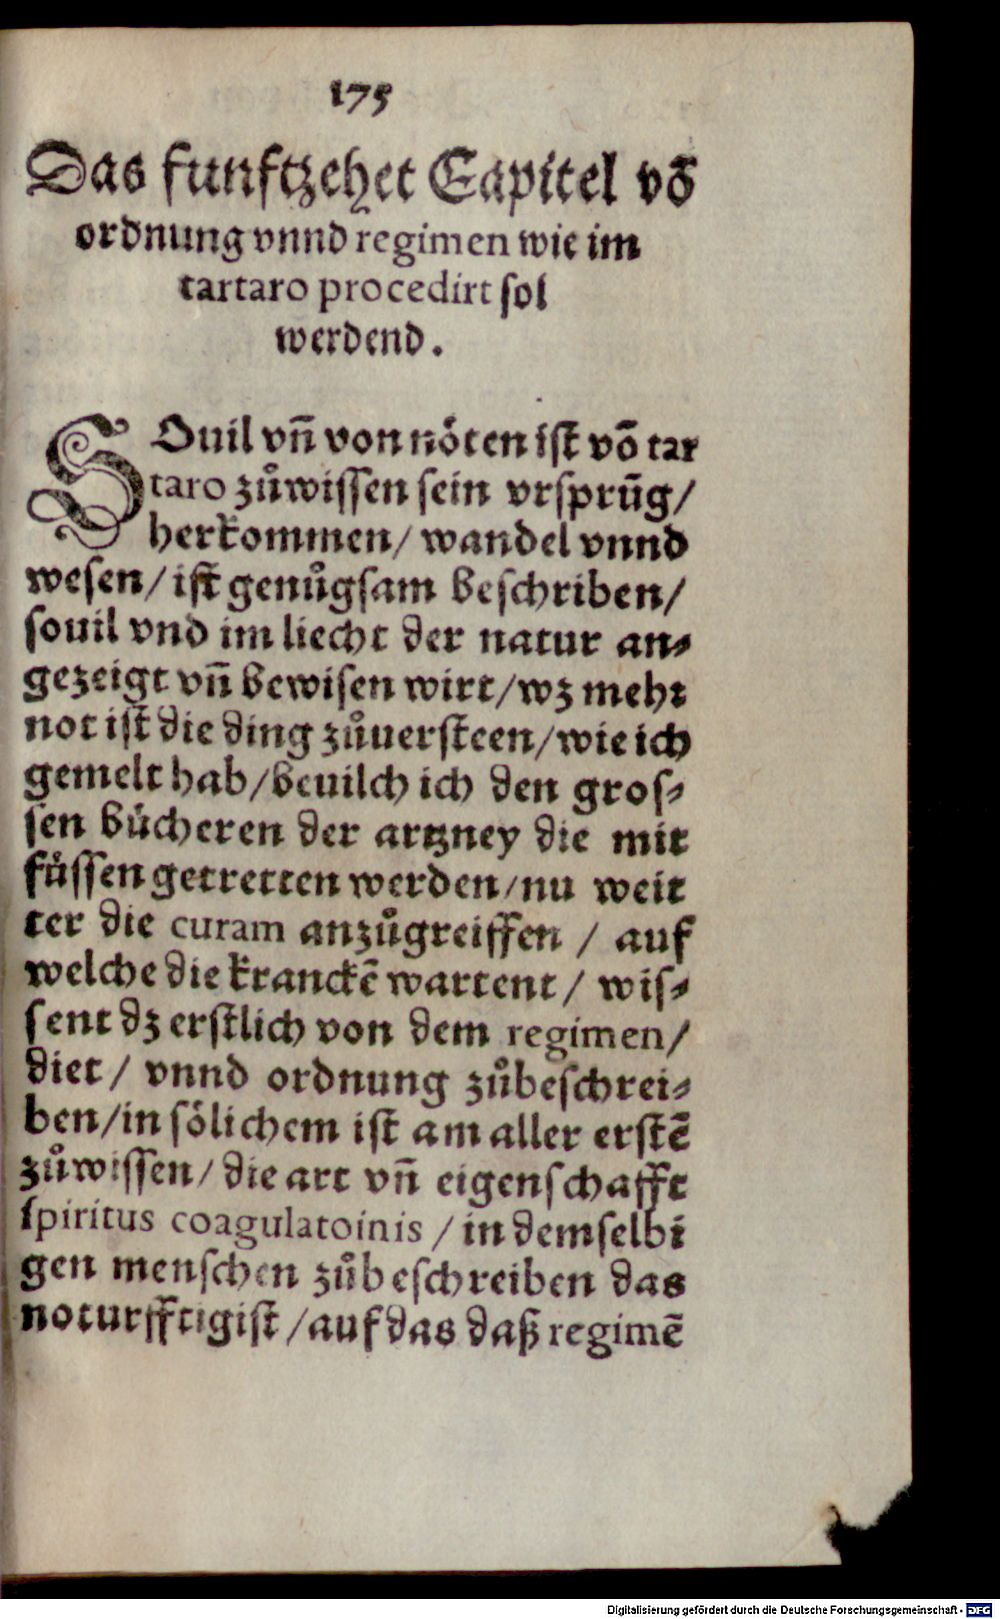 175
Das funftzehet Capitel võ
ordnung vnnd regimen wie im
tartaro procedirt sol
werdend.
SOuil vñ von nöten ist võ tar
taro zůwissen sein vrsprũg/
herkommen/ wandel vnnd
wesen/ ist genůgsam beschriben/
souil vnd im liecht der natur an-
gezeigt vñ bewisen wirt/wz mehr
not ist die ding zůuersteen/wie ich
gemelt hab/beuilch ich den gros-
sen bücheren der artzney die mit
füssen getretten werden/nu weit
ter die curam anzůgreiffen / auf
welche die kranckẽ wartent / wis-
sent dz erstlich von dem regimen/
diet / vnnd ordnung zůbeschrei-
ben/in sölichem ist am aller erstẽ
zůwissen/ die art vñ eigenschafft
spiritus coagulatoinis / in demselbi
gen menschen zůbeschreiben das
noturfftigist /auf das daß regimẽ
Digitalisierung gefördert durch die Deutsche Forschungsgemeinschaft - DFG